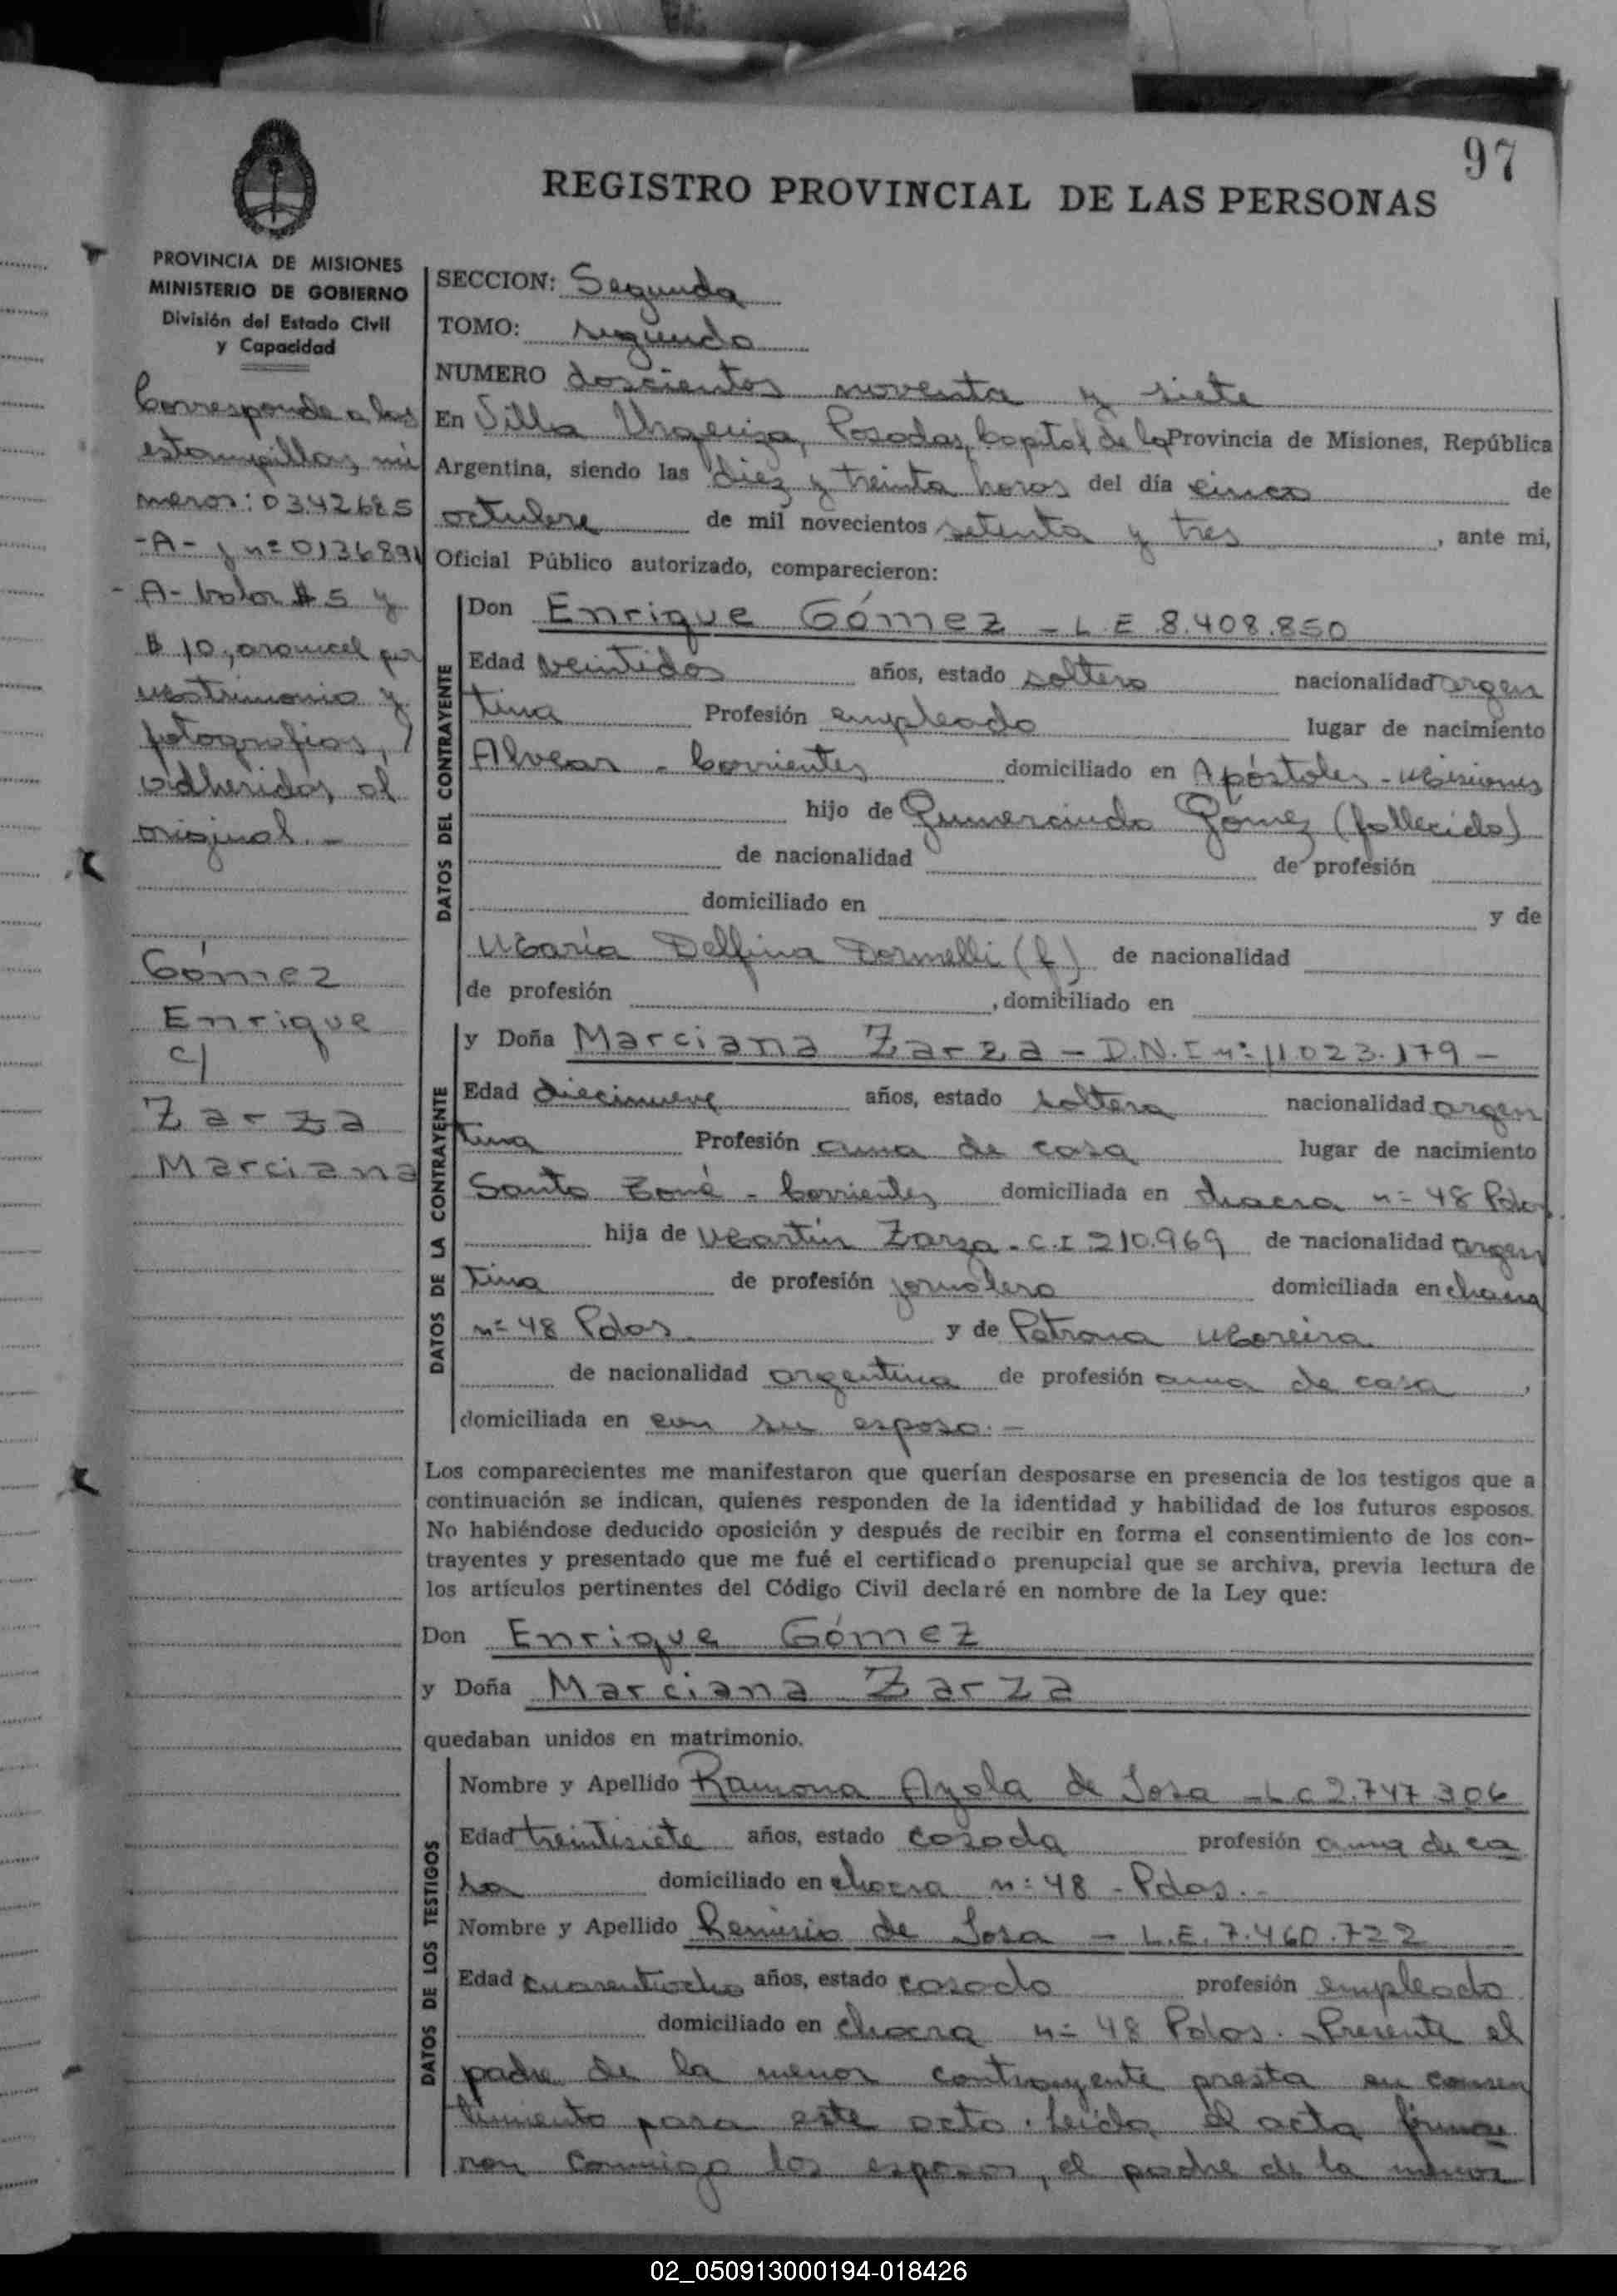 97
REGISTRO PROVINCIAL DE LAS PERSONAS
PROVINCIA DE MISIONES
MINISTERIO DE GOBIERNO
División del Estado Civil
y Capacidad
Corresponde a las
estampillas, nú
meros: 0342685
-A- y nº 0136891
- A- Valor $ 5 y
$ 10, arancel por
matrimonio y
fotografias,
adheridas al
original. -
Gómez
Enrique
c/
Zarza
Marciana
SECCION: Segunda
TOMO: segundo
NUMERO doscientos noventa y siete
En Villa Urquiza, Posadas, Capital de la Provincia de Misiones, República
Argentina, siendo las diez y treinta horas del día cinco de
octubre de mil novecientos setenta y tres, ante mi,
Oficial Público autorizado, comparecieron:
DATOS DEL CONTRAYENTE
Don Enrique Gómez - L E 8.408.850
Edad veintidos años, estado soltero nacionalidad argen
tina Profesión empleado lugar de nacimiento
Alvear - Corrientes domiciliado en Apóstoles - Misiones
hijo de Gumercindo Gómez (fallecido)
de nacionalidad de profesión
domiciliado en y de
María Delfina Dornelli (f) de nacionalidad
de profesión , domiciliado en
DATOS DE LA CONTRAYENTE
y Doña Marciana Zarza - D.N.I nº 11.023.179 -
Edad diecinueve años, estado soltera nacionalidad argen
tina Profesión ama de casa lugar de nacimiento
Santo Tomé - Corrientes domiciliada en chacra nº 48 Pdas
hija de Martín Zarza - C.I 210.969 de nacionalidad argen
tina de profesión jornalero domiciliada en chacra
nº 48 Pdas. y de Petrona Moreira
de nacionalidad argentina de profesión ama de casa ,
domiciliada en con su esposo. -
Los comparecientes me manifestaron que querían desposarse en presencia de los testigos que a
continuación se indican, quienes responden de la identidad y habilidad de los futuros esposos.
No habiéndose deducido oposición y después de recibir en forma el consentimiento de los con-
trayentes y presentado que me fué el certificado prenupcial que se archiva, previa lectura de
los artículos pertinentes del Código Civil declaré en nombre de la Ley que:
Don Enrique Gómez
y Doña Marciana Zarza
quedaban unidos en matrimonio.
DATOS DE LOS TESTIGOS
Nombre y Apellido Ramona Ayala de Sosa - L C 2.747.306
Edad treintisiete años, estado casada profesión ama de ca
sa domiciliado en chacra nº 48 - Pdas. -
Nombre y Apellido Remisio de Sosa - L.E. 7.460.722
Edad cuarentiocho años, estado casado profesión empleado
domiciliado en chacra nº 48 Pdas. - Presente el
padre de la menor contrayente presta su consen
timiento para este acto. Leida el acta firma
ron conmigo los esposos, el padre de la menor
02_050913000194-018426